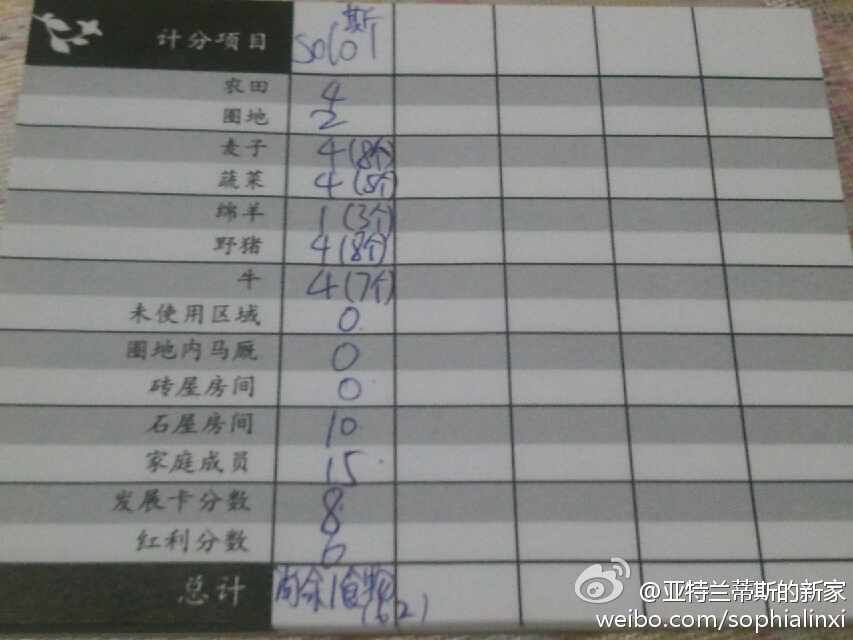 计分项目 斯 SOLO
农田 4
圈地 2
麦子 4(8个)
蔬菜 4
绵羊 1(3个)
野猪 4(8个)
牛 4(7个)
未使用区域 0
圈地内马厩 0
砖屋房间 0
石屋房间 10
家庭成员 15
发展卡分数 8
红利分数 6
总计 尚余1食物
(62)
@亚特兰蒂斯的新家
weibo.com/sophialinxi